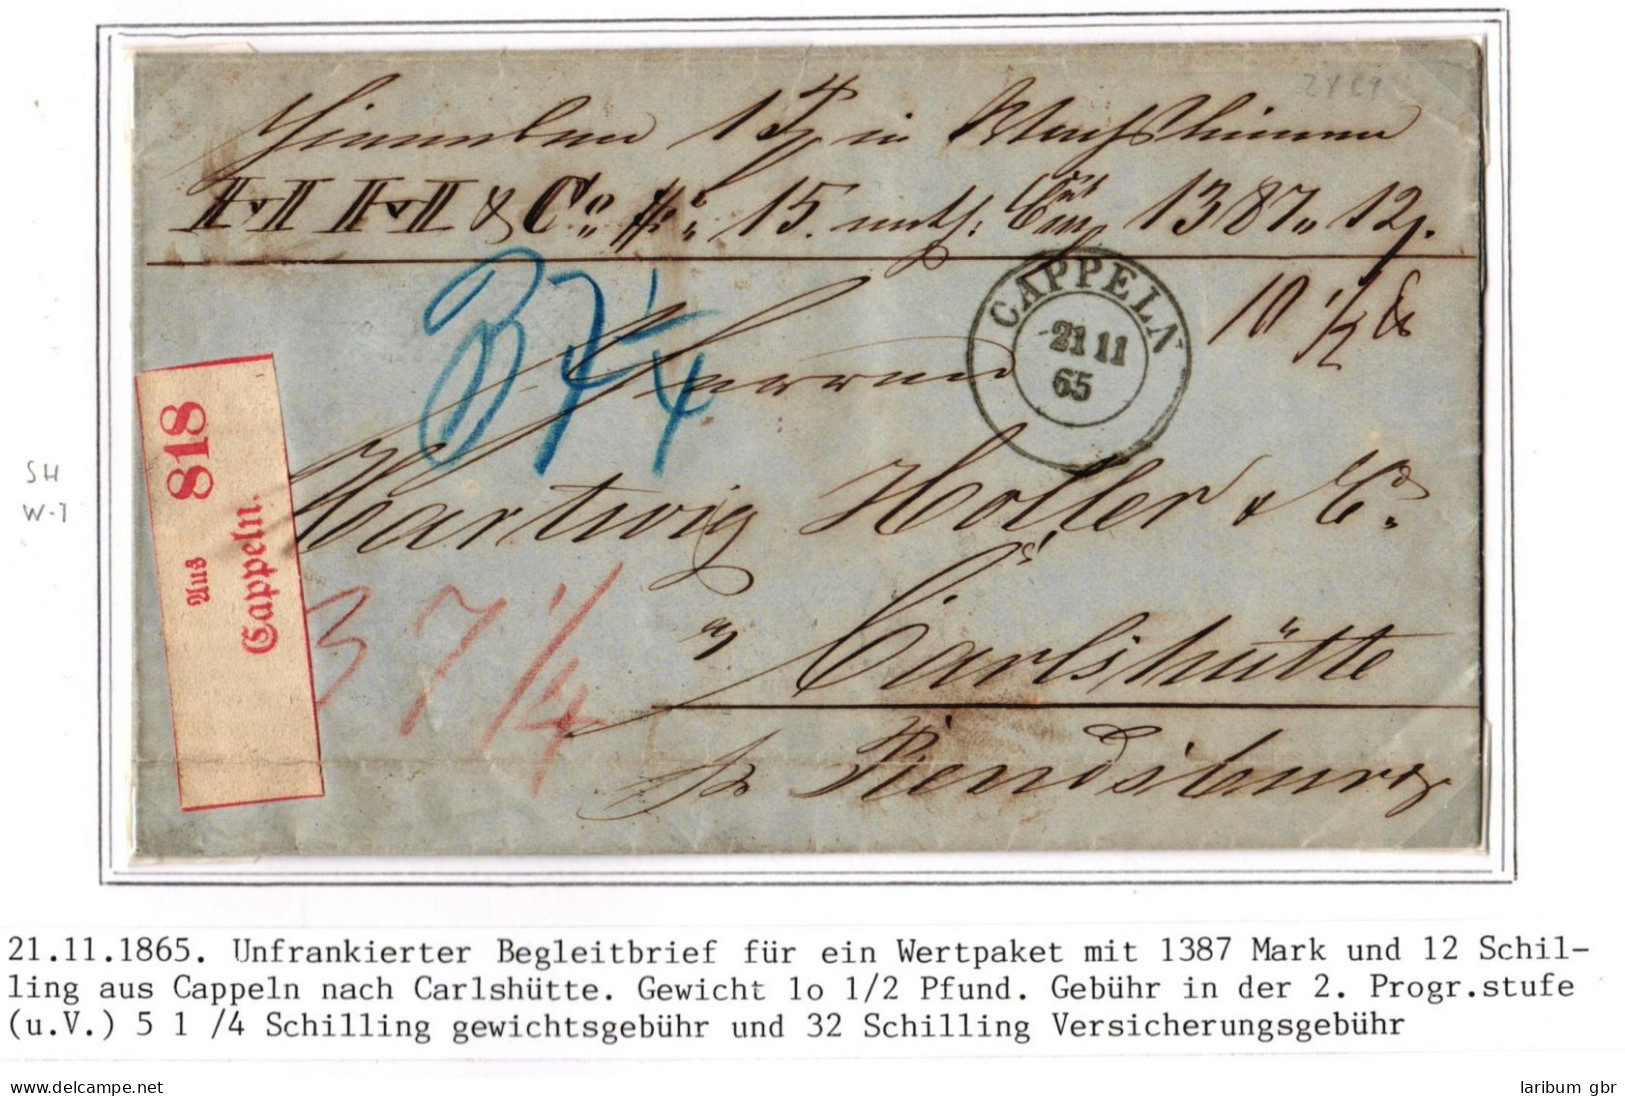 2429
in
& Co. 15. 1387 12
10 1/2
37 1/4
CAPPELN
21 11
65
818
Aus
Cappeln.
SH
W-1
Hartwig Holler & Co.
37 1/4
Carlshütte
pr Rendsburg
21.11.1865. Unfrankierter Begleitbrief für ein Wertpaket mit 1387 Mark und 12 Schil-
ling aus Cappeln nach Carlshütte. Gewicht 1o 1/2 Pfund. Gebühr in der 2. Progr.stufe
(u.V.) 5 1 /4 Schilling gewichtsgebühr und 32 Schilling Versicherungsgebühr
www.delcampe.net
laribum gbr